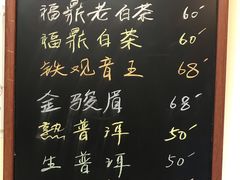 福鼎老白茶 60
福鼎白茶 60
铁观音王 68
金骏眉 68
熟普洱 50
生普洱 50